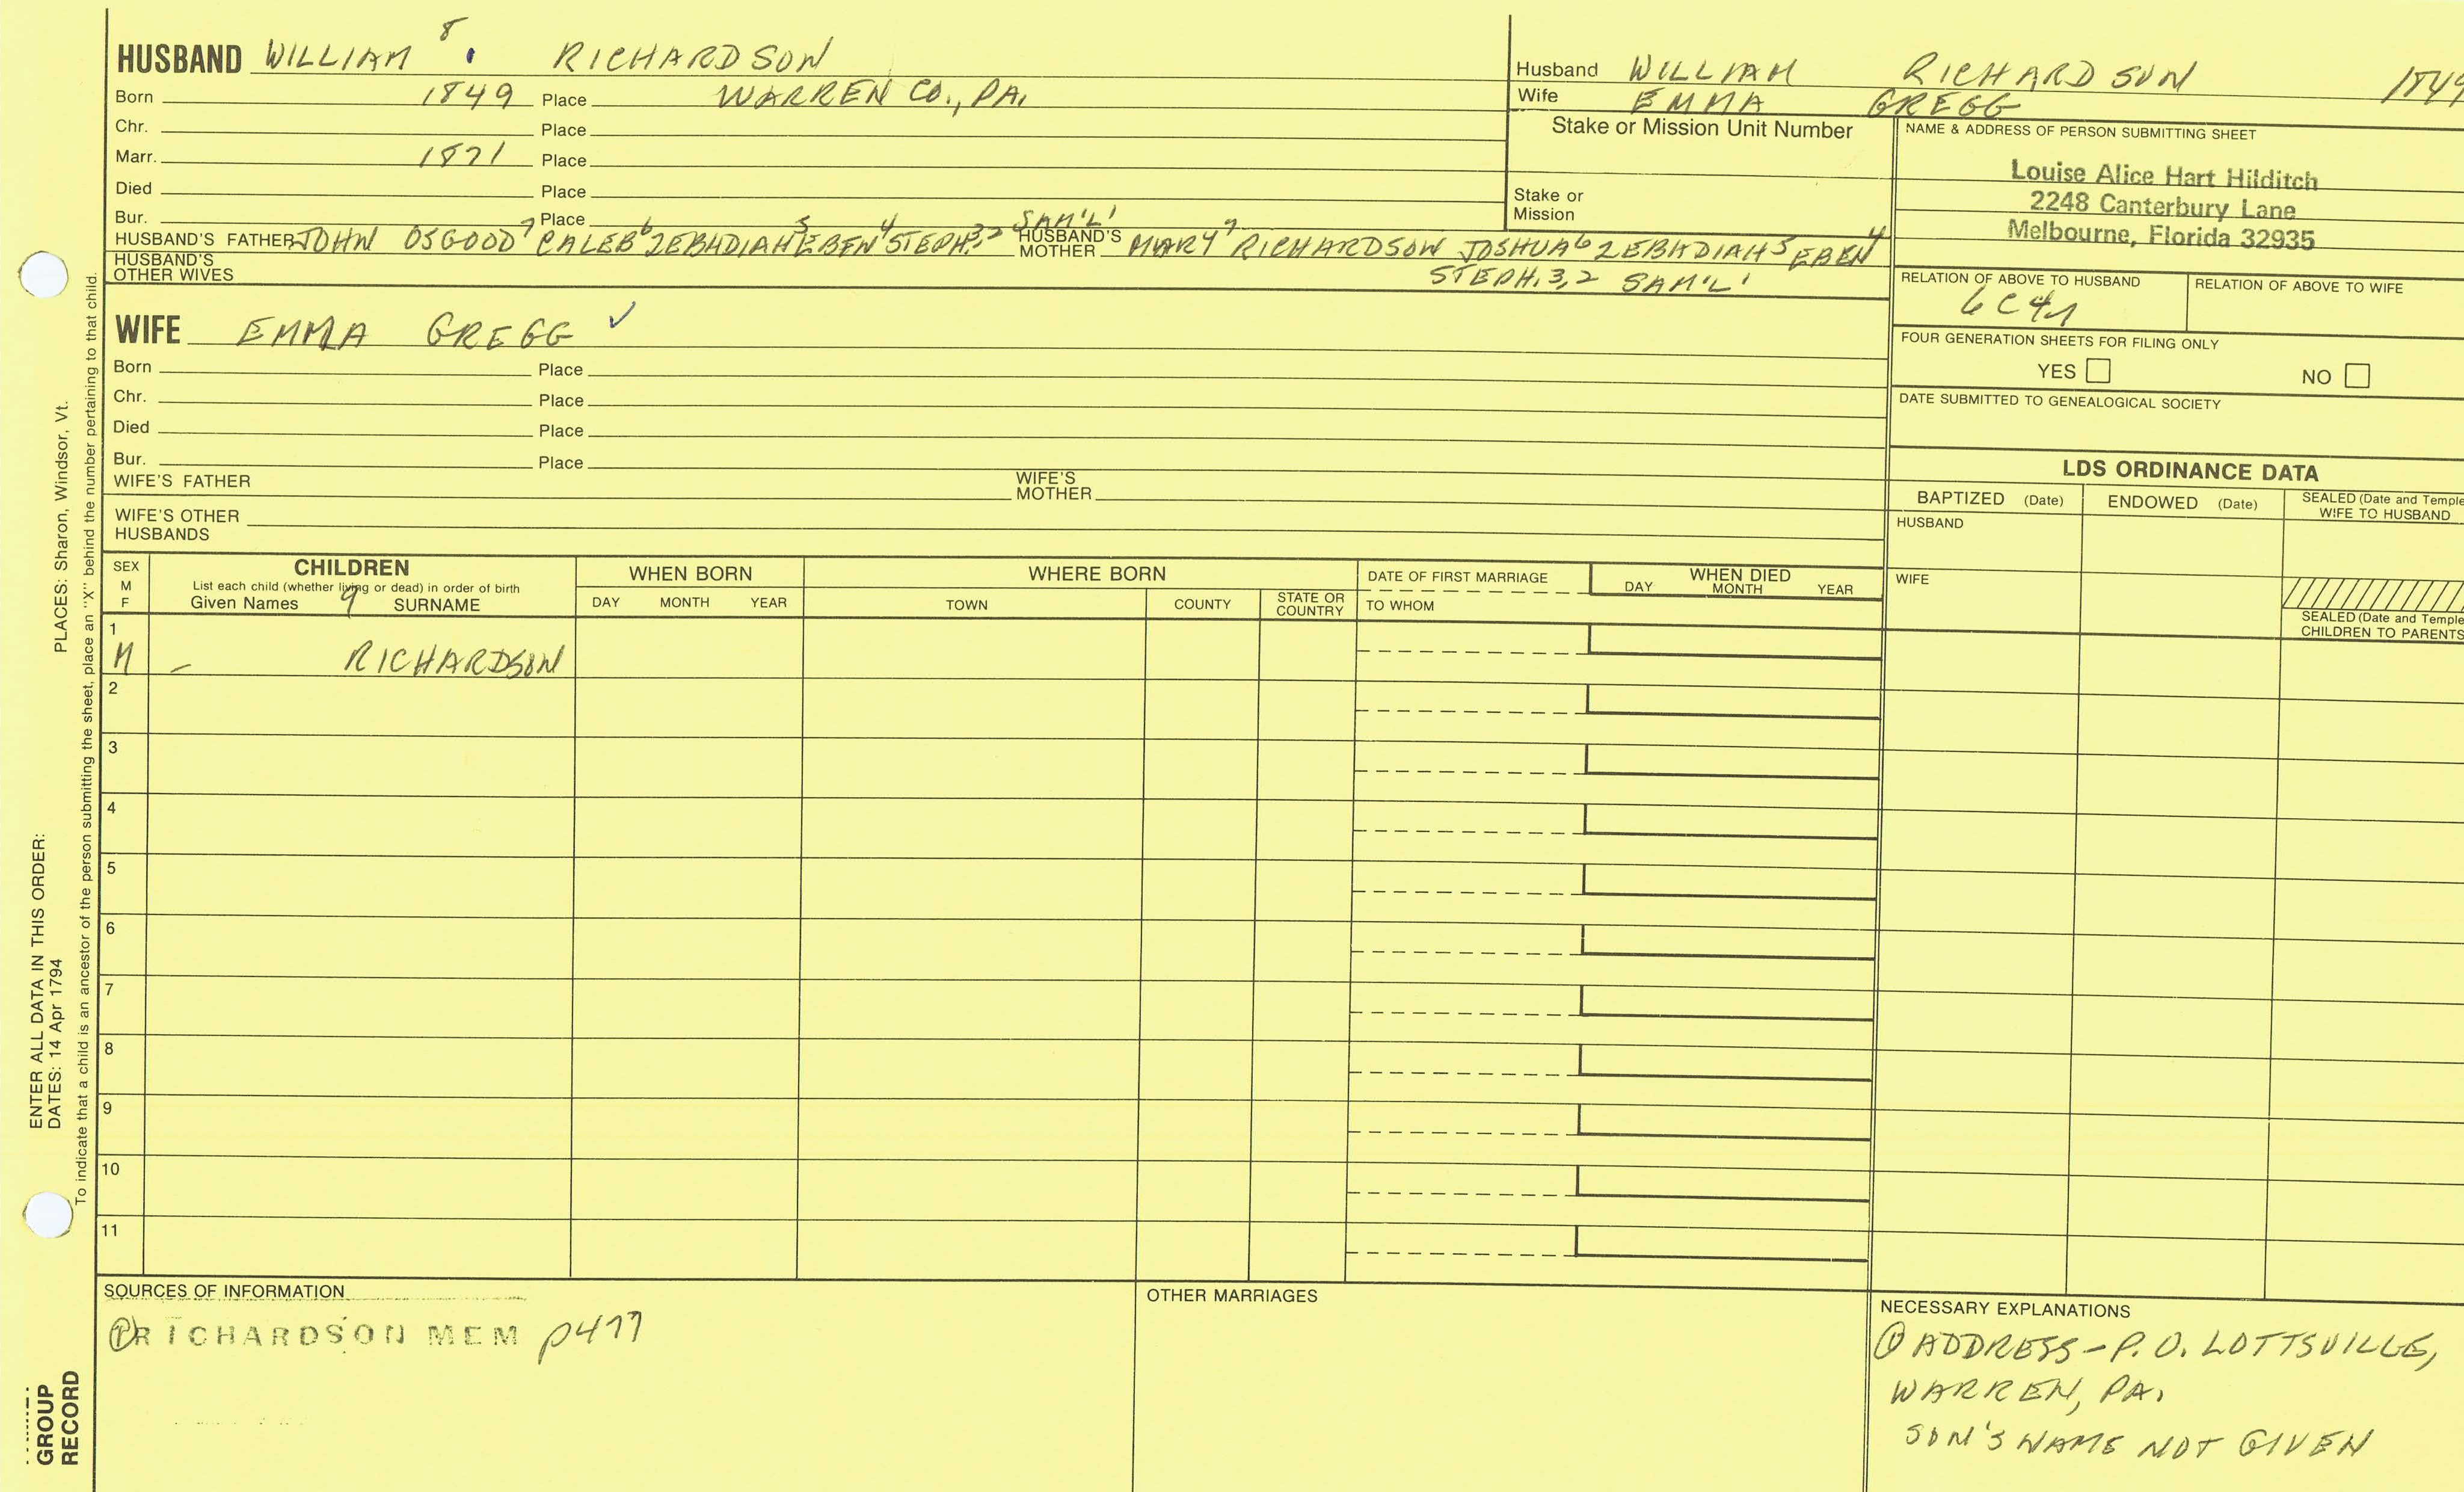 HUSBAND WILLIAM 8 RICHARDSON
Born 1849 Place WARREN CO., PA.
Chr. Place
Marr. 1871 Place
Died Place
Bur. Place
HUSBAND'S FATHER JOHN OSGOOD 7 CALEB 6 ZEBADIAH 5 EBEN 4 STEPH. 3,2 SAM'L 1 HUSBAND'S MOTHER MARY 7 RICHARDSON JOSHUA 6 ZEBADIAH 5 EBEN 4
STEPH. 3,2 SAM'L 1
HUSBAND'S OTHER WIVES
WIFE EMMA GREGG ✓
Born Place
Chr. Place
Died Place
Bur. Place
WIFE'S FATHER WIFE'S MOTHER
WIFE'S OTHER HUSBANDS
Husband WILLIAM RICHARDSON 1849
Wife EMMA GREGG
Stake or Mission Unit Number
Stake or Mission
NAME & ADDRESS OF PERSON SUBMITTING SHEET
Louise Alice Hart Hilditch
2248 Canterbury Lane
Melbourne, Florida 32935
RELATION OF ABOVE TO HUSBAND RELATION OF ABOVE TO WIFE
6C4r
FOUR GENERATION SHEETS FOR FILING ONLY
YES NO
DATE SUBMITTED TO GENEALOGICAL SOCIETY
LDS ORDINANCE DATA
BAPTIZED (Date) ENDOWED (Date) SEALED (Date and Temple) WIFE TO HUSBAND
HUSBAND
WIFE
SEALED (Date and Temple) CHILDREN TO PARENTS
SEX M F
CHILDREN
List each child (whether living or dead) in order of birth
Given Names 9 SURNAME
WHEN BORN
DAY MONTH YEAR
WHERE BORN
TOWN COUNTY STATE OR COUNTRY
DATE OF FIRST MARRIAGE
TO WHOM
WHEN DIED
DAY MONTH YEAR
1
M – RICHARDSON
2
3
4
5
6
7
8
9
10
11
SOURCES OF INFORMATION
① RICHARDSON MEM p477
OTHER MARRIAGES
NECESSARY EXPLANATIONS
① ADDRESS – P.O. LOTTSVILLE,
WARREN, PA.
SON'S NAME NOT GIVEN
ENTER ALL DATA IN THIS ORDER:
DATES: 14 Apr 1794 PLACES: Sharon, Windsor, Vt.
To indicate that a child is an ancestor of the person submitting the sheet, place an "X" behind the number pertaining to that child.
GROUP
RECORD